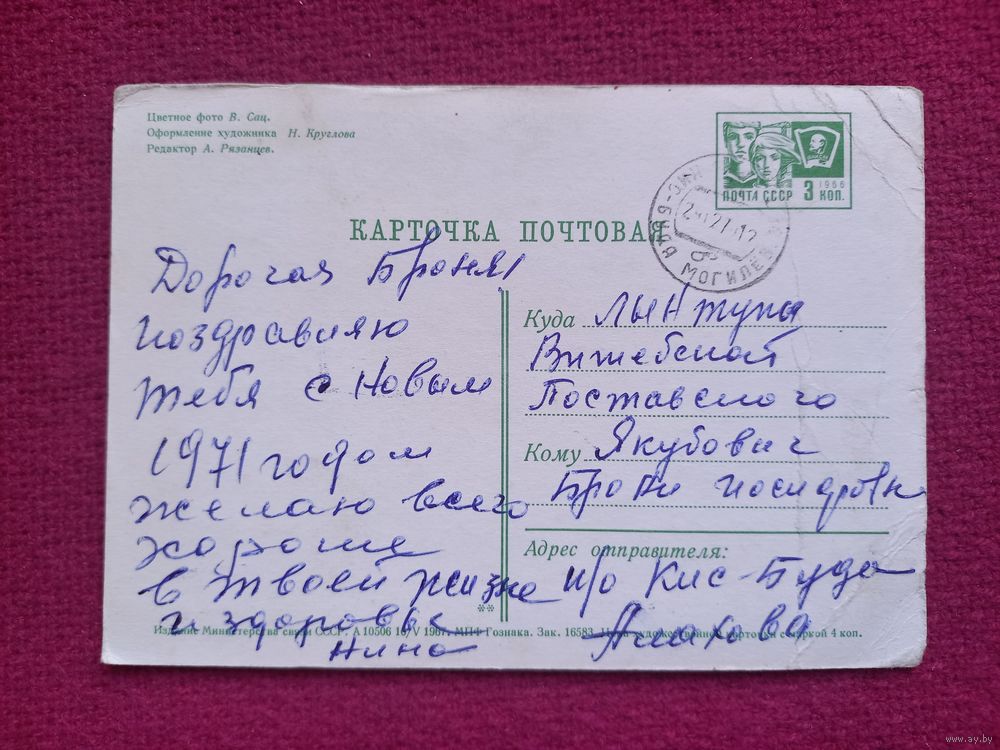 Цветное фото В. Сац.
Оформление художника Н. Круглова
Редактор А. Рязанцев.
ПОЧТА СССР 3 КОП.
1966
КАРТОЧКА ПОЧТОВАЯ
Дорогая Броня!
поздравляю
тебя с Новым
1971 годом
желаю всего
хороше
в твоей жизне
и здоровье
Нина
Куда Лынтупы
Витебской
Поставского
Кому Якубович
Брони иосифовн
Адрес отправителя:
п/о Кис-Буда
Издание Министерства связи СССР. А 10506 16/V 1967. МПФ Гознака. Зак. 16583. Цена художественной карточки с маркой 4 коп.
www.ay.by